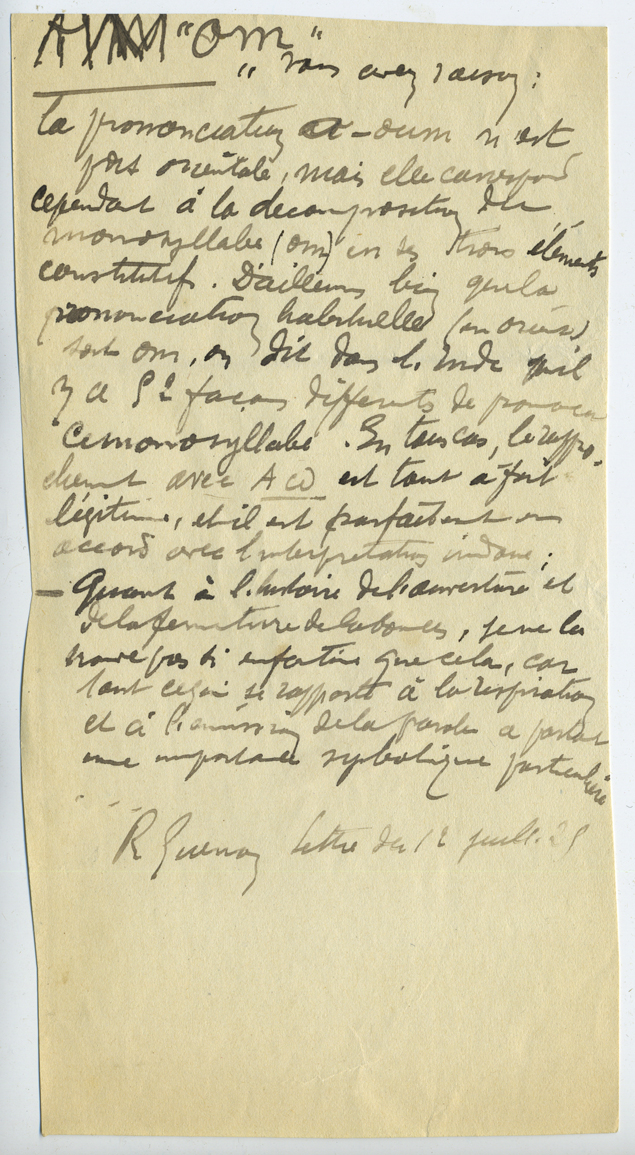 AUM "Om"
" Vous avez raison :
la prononciation a-oum n'est
pas orientale, mais elle correspond
cependant à la decomposition du
monosyllabe (om) en ses trois éléments
constitutifs. D'ailleurs bien que la
prononciation habituelle (en orient)
soit om, on dit dans l'Inde qu'il
y a façons différents de prononcer
ce monosyllabe. En tous cas, le rappro-
chement avec est tout à fait
légitime, et il est parfaitement en
accord avec l'interpretation indoue.
— Quant à l'histoire de l'ouverture et
de la fermeture de la bouche, je ne la
trouve pas si enfantine que cela, car
tout ce qui se rapporte à la respiration
et à l'émission de la parole a partout
une importance symbolique particulière
R Guenon lettre du 12 juil.